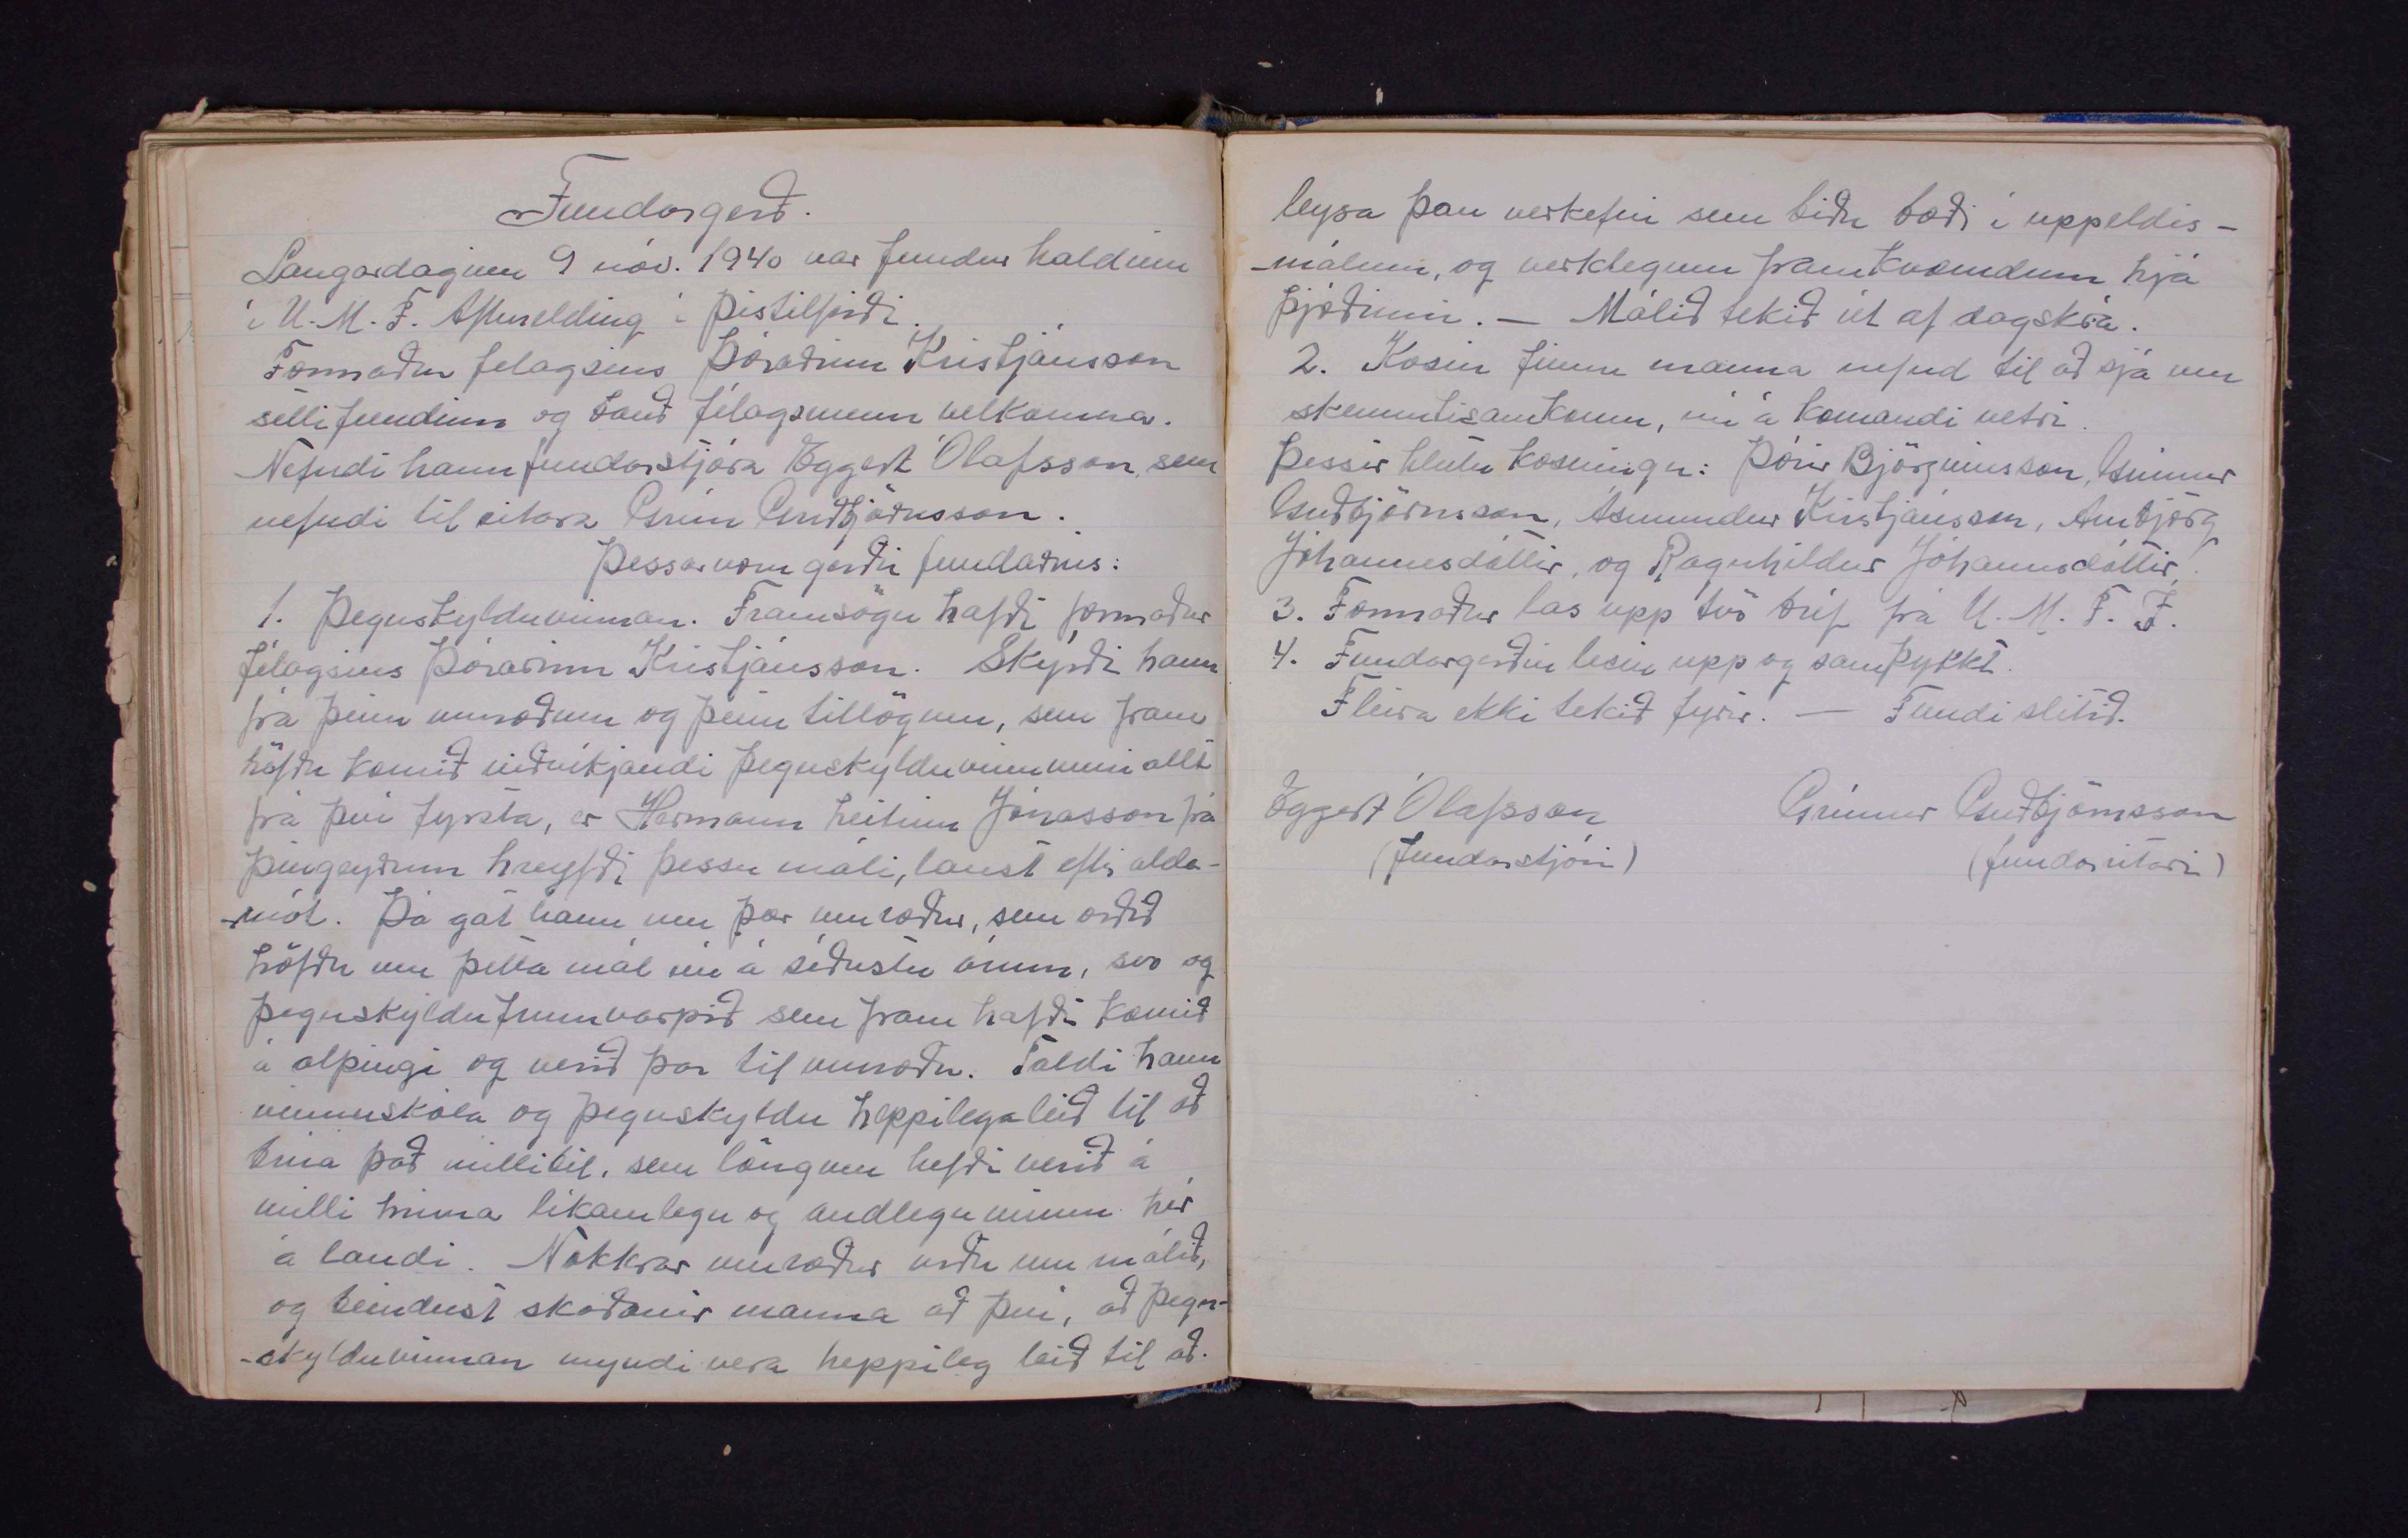 Fundargerð.
Laugardaginn 9 nóv. 1940 var fundur haldinn
í U. M. F. Afturelding í Þistilfirði.
Formaður felagsins Þórarinn Kristjánsson
setti fundinn og bauð félagsmenn velkomna.
Nefndi hann fundarstjóra Eggert Ólafsson, sem
nefndi til ritara Grím Guðbjörnsson.
Þessar voru gerðir fundarins:
1. Þegnskylduvinnan. Framsögu hafði formaður
félagsins Þórarinn Kristjánsson. Skýrði hann
frá þeim umræðum og þeim tillögum, sem fram
höfðu komið viðvíkjandi þegnskylduvinnunni allt
frá því fyrsta, er Hermann heitinn Jónasson frá
Þingeyrum hreyfði þessu máli, laust eftir alda-
-mót. Þá gat hann um þær umræður, sem orðið
höfðu um þetta mál nú á síðustu árum, svo og
þegnskyldufrumvarpið sem fram hafði komið
á alþingi og verið þar til umræðu. Taldi hann
vinnuskóla og þegnskyldu heppilega leið til að
brúa það millibil, sem löngum hefði verið á
milli hinna líkamlegu og andlegu vinnu hér
á landi. Nokkrar umræður urðu um málið,
og beindust skoðanir manna að því, að þegn-
-skylduvinnan myndi vera heppileg leið til að.
leysa þau verkefni sem biðu bæði í uppeldis-
-málum, og verklegum framkvæmdum hjá
þjóðinni. — Málið tekið út af dagskrá.
2. Kosin fimm manna nefnd til að sjá um
skemmtisamkomu, nú á komandi vetri.
Þessir hlutu kosningu: Þórir Björgvinsson, Grímur
Guðbjörnsson, Ásmundur Kristjánsson, Arnbjörg
Jóhannesdóttir, og Ragnhildur Jóhannsdóttir.
3. Formaður las upp tvö bréf frá U. M. F. Í.
4. Fundargerðin lesin upp og samþykkt.
Fleira ekki tekið fyrir. — Fundi slitið.
Eggert Ólafsson Grímur Guðbjörnsson
(fundarstjóri) (fundarritari)